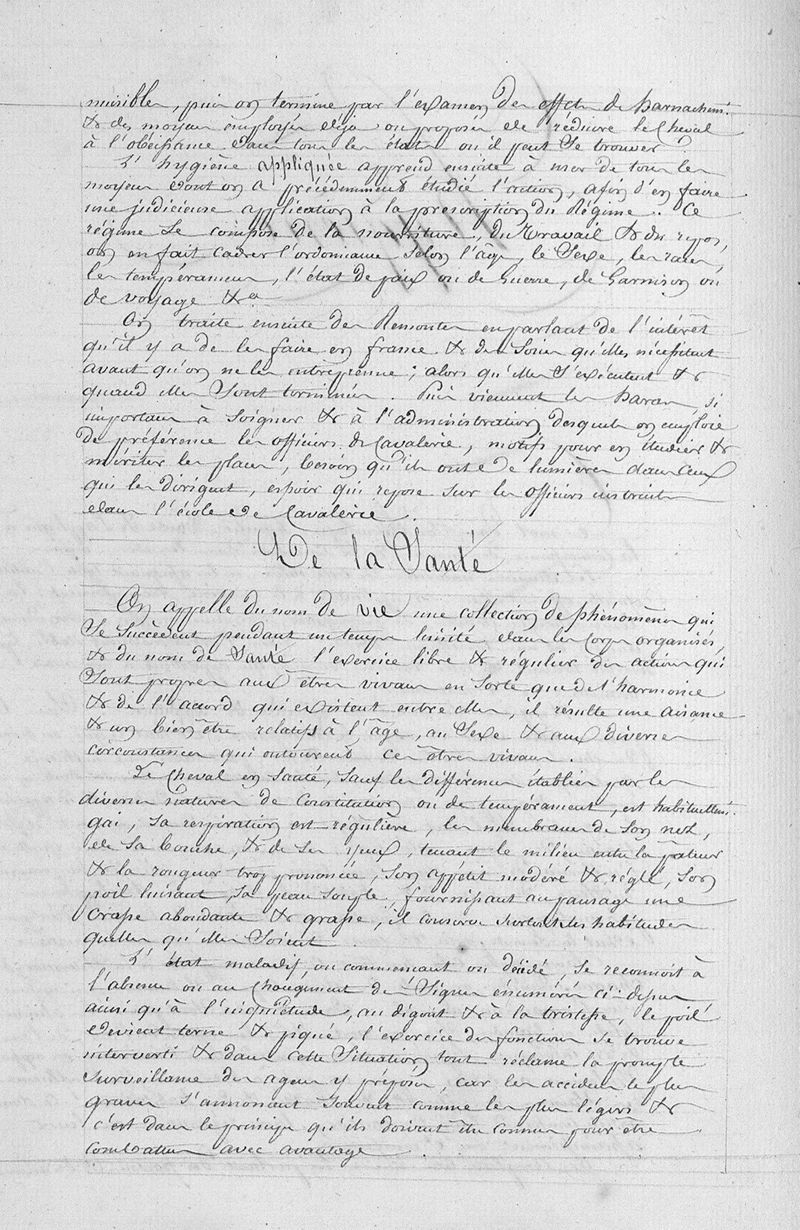 nuisibles, puis on termine par l'examen des effets de harnachem.t
& des moyens employés deja ou proposés de réduire le Cheval
à l'obéissance dans tous les états où il peut se trouver
L'hygiène appliquée apprend ensuite à user de tous les
moyens dont on a précédemment étudié l'action, afin d'en faire
une judicieuse application à la prescription du Régime. Ce
régime se compose de la nourriture, du Travail & du repos,
on en fait cadrer l'ordonnance selon l'âge, le Sexe, les races,
les tempéramens, l'état de paix ou de Guerre, de Garnison ou
de voyage &a
On traite ensuite des Remontes en parlant de l'intérêt
qu'il y a de les faire en france & des Soins qu'elles nécessitent
avant qu'on ne les entreprenne ; alors qu'elles S'exécutent &
quand elles Sont terminées. Puis viennent les haras, si
importans à Soigner & à l'administration desquels on emploie
de préférence les officiers de Cavalerie, motifs pour en étudier &
mériter les places, besoin qu'ils ont de lumières dans ceux
qui les dirigent, espoir qui repose sur les officiers instruits
dans l'école de Cavalerie.
De la Santé
On appelle du nom de vie une collection de phénomènes qui
Se succèdent pendant un temps limité dans les Corps organisés,
& du nom de Santé l'exercice libre & régulier des actions qui
Sont propres aux êtres vivans en sorte que de l'harmonie
& de l'accord qui existent entre elles, il résulte une aisance
& un bien être relatifs à l'âge, au Sexe & aux diverses
circonstances qui entourent ces êtres vivans.
Le Cheval en Santé, sauf les différences établies par les
diverses natures de Constitution ou de tempérament, est habituellem.t
gai, sa respiration est régulière, les membranes de son nez,
de sa bouche, & de ses yeux, tenant le milieu entre la pâleur
& la rougeur trop prononcée, Son appétit modéré & réglé, son
poil luisant, sa peau souple, fournissant au pansage une
Crasse abondante & grasse, il conserve surtout les habitudes
quelles qu'elles Soient
L'état maladif, ou commençant ou décidé, se reconnoit à
l'absence ou au changement des Signes énumérés ci-dessus
ainsi qu'à l'inquiétude, au dégout & à la tristesse, le poil
devient terne & piqué, l'exercice des fonctions se trouve
interverti & dans cette Situation tout réclame la prompte
surveillance des agens y préposés, car les accidens le plus
graves s'annoncent souvent comme les plus légers &
c'est dans le principe qu'ils doivent être connus pour être
combattus avec avantage.